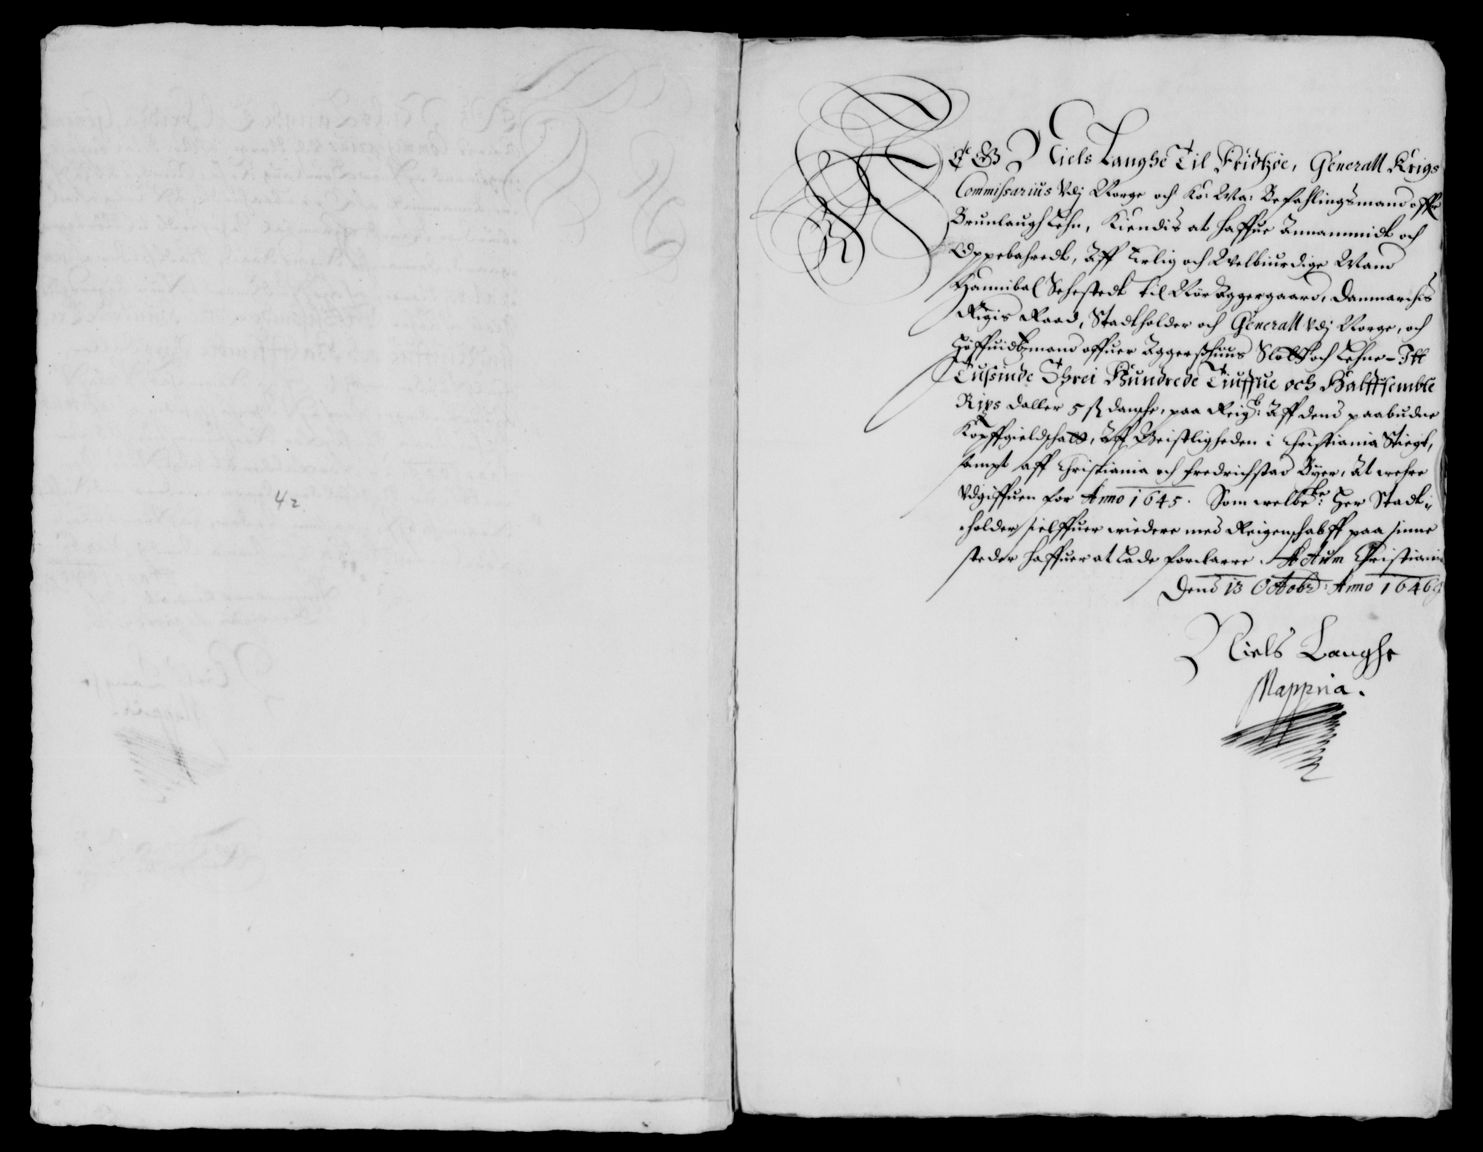 42
Jeg Niels Langhe Til Fridtzöe, Generall Krigs
Commissarius Vdj Norge och Ko: Ma: Befahlingsmand offr
Brunlaugh Lehn, Kiendis at haffue Annammidt och
Oppebahredt, Aff Erlig och Welbiurdige Mand
Hannibal Sehestedt til Nör Aggergaard, Danmarchis
Rigis Raad, Stadtholder och Generall Vdj Norge, och
Höffuidtzmand offuer Aggerszhuus Slott och Lehne – Itt
Tusinde Threi Hundrede Tiuffue och Halfffemble
Rixs daller 5 ß danshe, paa Reig: Aff dend paabudne
Kopffgieldschatt, Aff Geistligheden i Christiania Stiegt,
sampt aff Christiania och Fredrichstad Byer, At wehre
Vdgiffuen for Anno 1645. Som welbe: Her Stadt-
holder sielffuer wiedere med Reigenschabff paa sinne
steder haffuer at lade forclarre. Actum Christiania
Dend 13 Octobr: Anno 1646
Niels Langhe
Mappria.